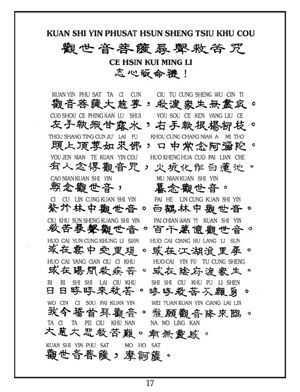 KUAN SHI YIN PHUSAT HSUN SHENG TSIU KHU COU
觀世音菩薩尋聲救苦咒
CE HSIN KUI MING LI
志心皈命禮!
KUAN YIN PHU SAT TA CI CUN CIU TU CUNG SHENG WU CIN TI
觀音菩薩大慈尊,救渡衆生無盡底。
CUO SHOU CE PHING KAN LU SHUI YOU SOU CE KEN YANG LIU CE
左手執缾甘露水,右手執根楊柳枝。
THOU SHANG TING CUN JU LAI FU KHOU CUNG CHANG NIAN A MI THO
頭上頂尊如來佛,口中常念阿彌陀。
YOU JEN NIAN TE KUAN YIN COU HUO KHENG HUA CUO PAI LIAN CHE
有人念得觀音咒,火坑化作白蓮池。
CAO NIAN KUAN SHI YIN MU NIAN KUAN SHI YIN
朝念觀世音,暮念觀世音。
CI CU LIN CUNG KUAN SHI YIN PAI HE LIN CUNG KUAN SHI YIN
紫竹林中觀世音。白鶴林中觀世音。
CIU KHU SUN SHENG KUANG SHI YIN PAI CHIAN WAN YI KUAN SHI YIN
救苦尋聲觀世音。百千萬億觀世音。
HUO CAI YUN CUNG KHUNG LI SIAN HUO CAI CIANG HU LANG LI SUN
或在雲中空裏現。或在江湖浪裏尋。
HUO CAI YANG CIAN CIU CI KHU HUO CAI YIN FU TU CUNG SHENG
或在陽間救疾苦。或在陰府渡衆生。
RI RI SHI SHI LAI CIU KHU SHI SHI CIU KHU PU LI SHEN
日日時時來救苦。時時救苦不離身。
WO CIN CI SOU PAI KUAN YIN WEI YUAN KUAN YIN CIANG LAI LIN
我今稽首拜觀音。惟願觀音降來臨。
TA CI TA PEI CIU KHU NAN NA MO LING KAN
大慈大悲救苦難。南無靈感。
KUAN SHI YIN PHU SAT MO HO SAT
觀世音菩薩,摩訶薩。
17